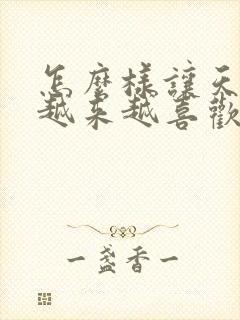 怎麼樣讓天
越來越喜歡
一盞香一